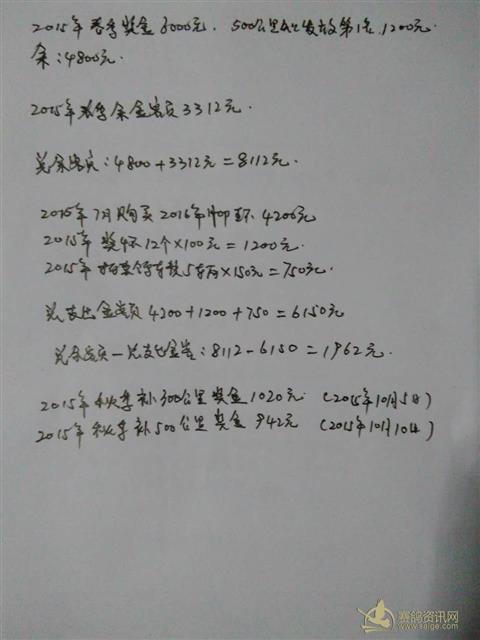 2015年春季奖金6000元. 500公里已发放第1名.1200元.
余:4800元.
2015年春季余金总额3312元.
总余额:4800+3312元=8112元.
2015年7月购买2016年 环 4200元
2015年奖杯12个×100元=1200元.
2015年 5 ×150元=750元.
总支出金额4200+1200+750=6150元
总余额-总支出金额:8112-6150=1962元.
2015年秋季补300公里奖金1020元 (2015年10月5日)
2015年秋季补500公里奖金942元 (2015年10月10日)
赛鸽资讯网
www.saige.com